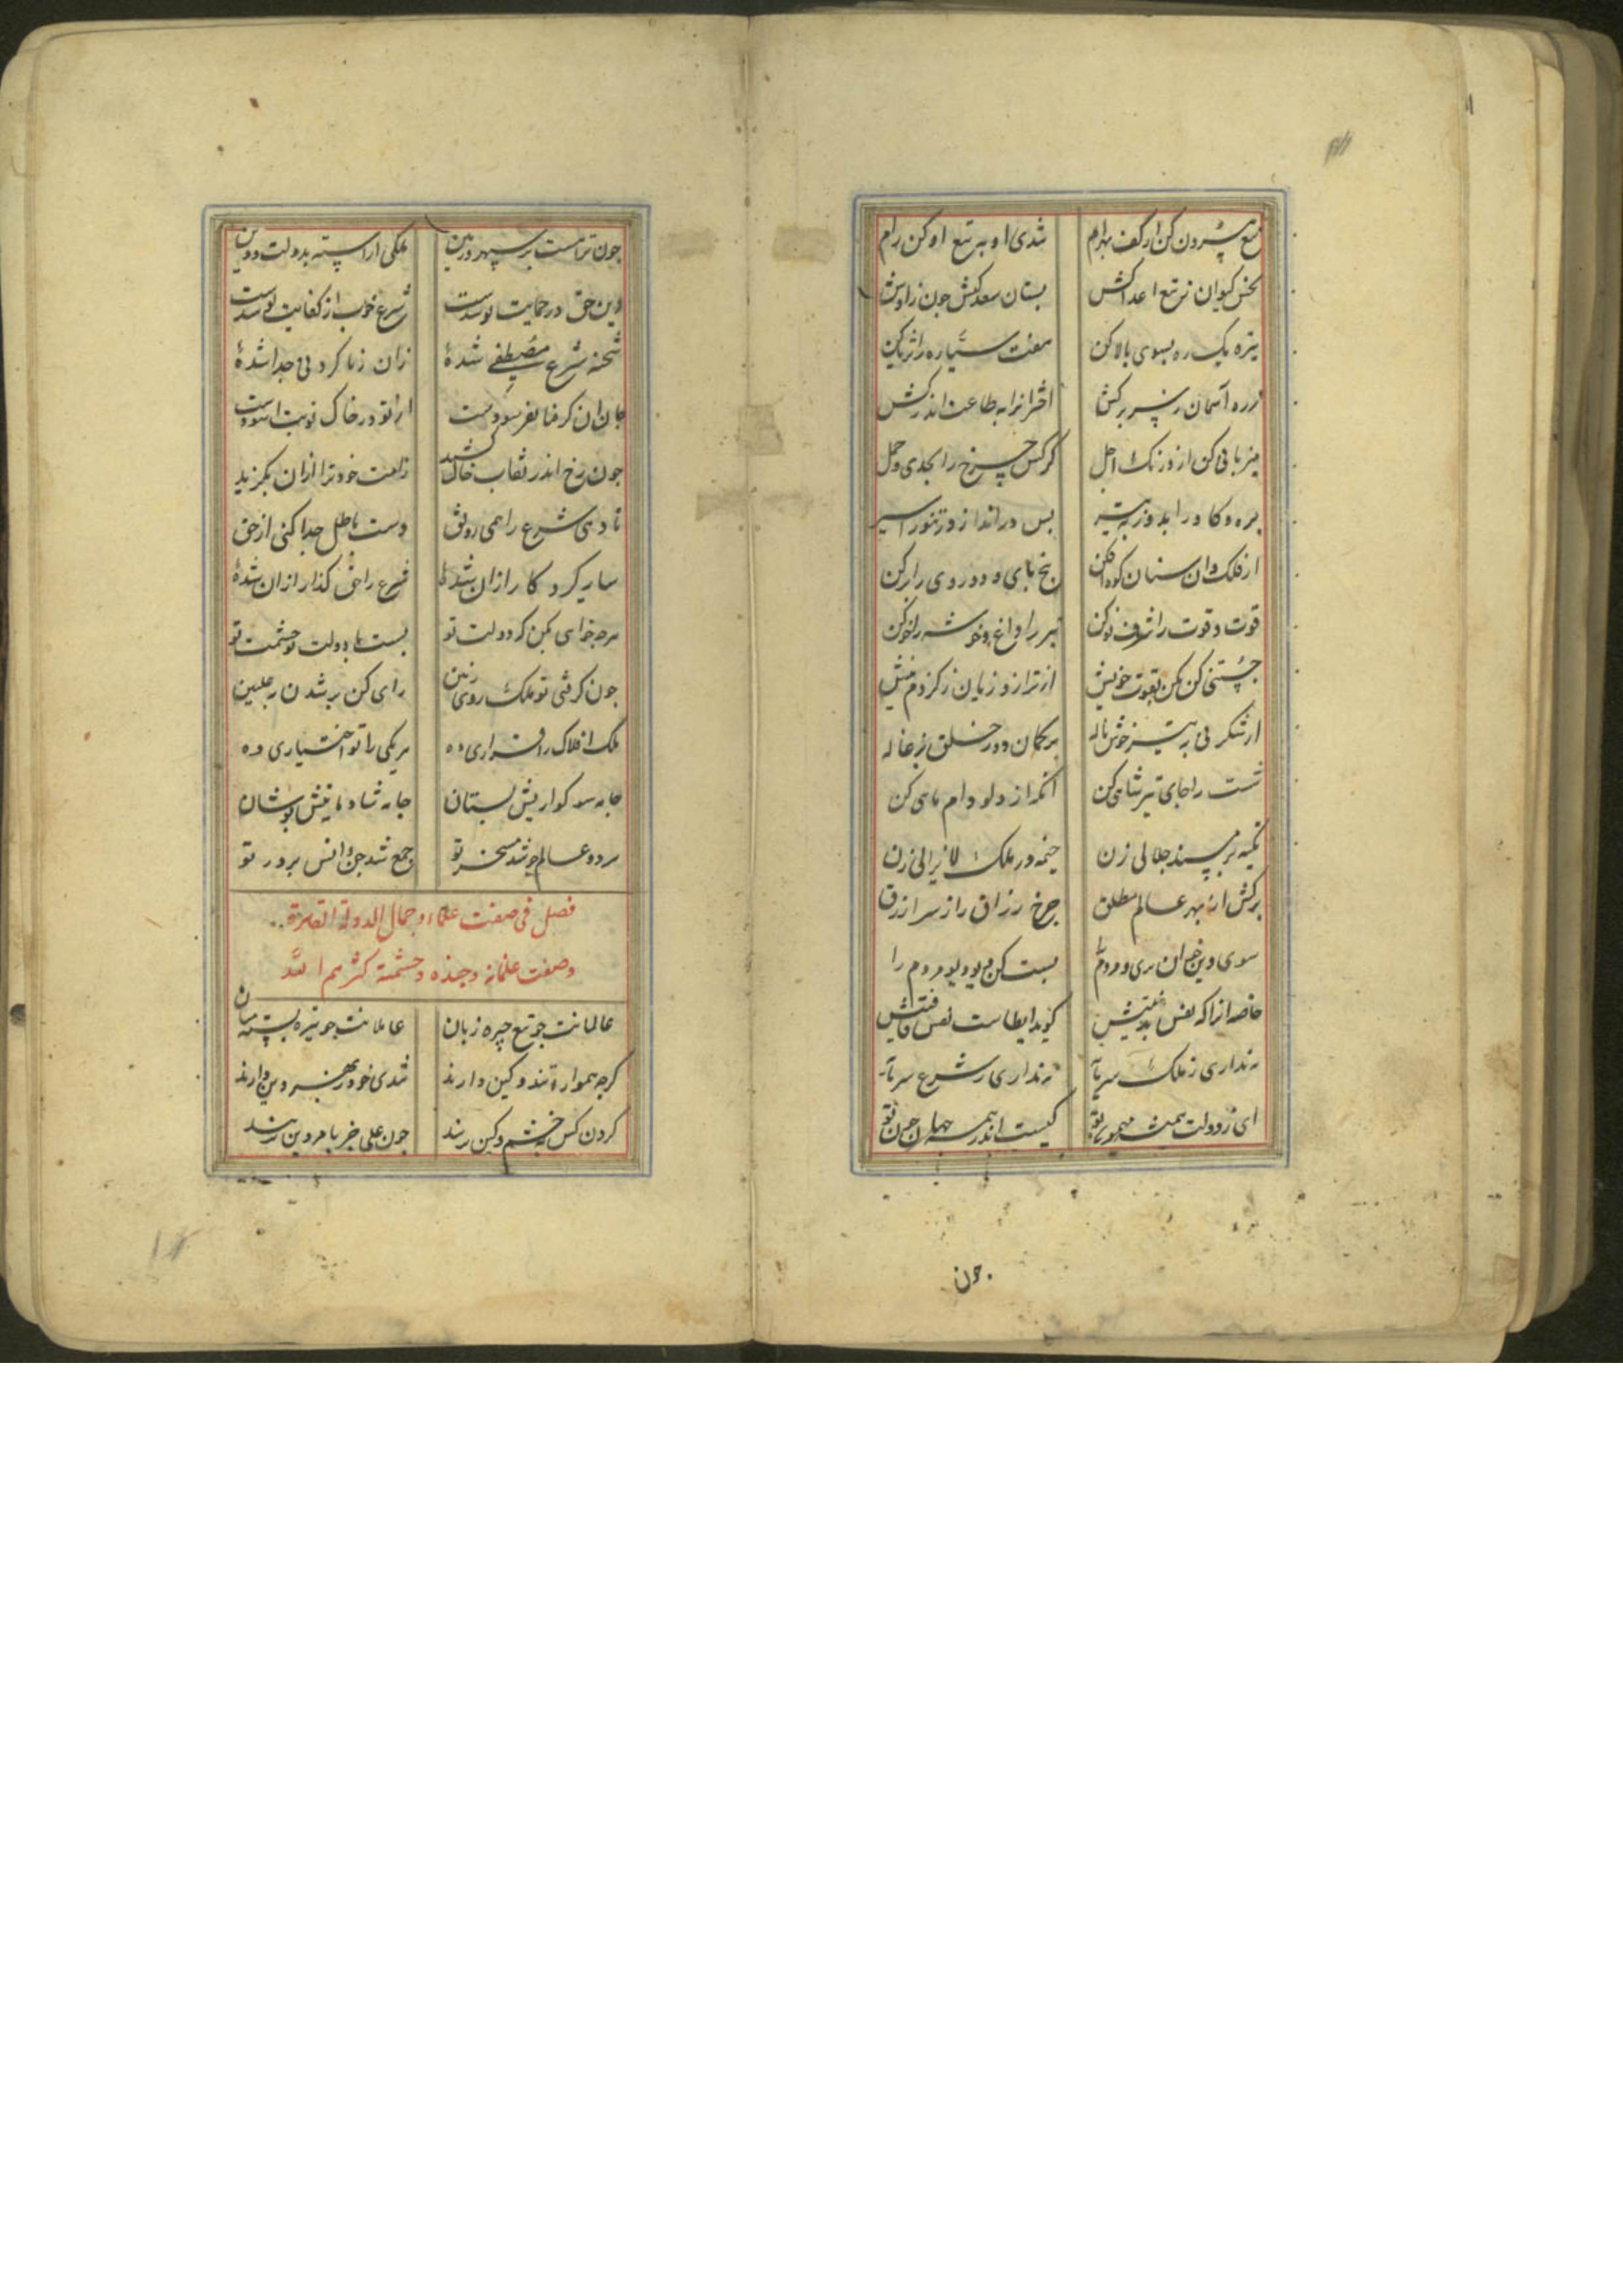 تیغ بیرون کن از کف بهرام
تندی او بتیغ او کن رام
نحس کیوان بتیغ اعدا کش
بستان سعدکیش چون زاوش
نیزه یک ره بسوی بالا کن
هفت سیاره را ثریا کن
زره آسمان ز سر برکش
اخترانرا به طاعت اندر کش
میزبانی کن از ورنک اجل
کرکس چرخ را بجدی و حمل
بره و کاو را بدوز به تیر
بس درانداز در تنور اسیر
از فلک وان سنان کوه افکن
بنج بای و دوروی را برکن
قوت و قوت را شرف نو کن
تیر را داغ و خوشه را خو کن
چستیی کن بکن بقوت خویش
از ترازو زبان ز کژدم نیش
از شکر فی به تیر خوش ناله
بر کمان دوز حلق بزغاله
شست را جای تیر شاهی کن
آنکه از دلو دام ماهی کن
تکیه بر مسند جلالی زن
خیمه در ملک لایزالی زن
برکش از بهر عالم مطلق
چرخ زراق را ز سر ازرق
سوی دین خوان بری و مردم را
بست کن دیو و دیو مردم را
خاصه انرا که نفس بدبختیش
کوید ایطاست نفس
نه نداری ز ملک سرمایه
نه نداری ز شرع سرمایه
ای ز دولت همیشه بهره تو
کیست اندر همه جهان چون تو
چون
چون تراست بر سپهر و زمین
ملکی اراسته بدولت و دین
دین حق در حمایت تو شدست
شرع خوب از کفایت تو شدست
شحنه شرع مصطفی شده
زان ز ناکردنی جدا شده
جان ان کز عنا بفرسودست
از تو در خاک نوبت اسودست
چون رخ اندر نقاب خاک کشید
زامت خود ترا ازان بکزید
تا دهی شرع را همی رونق
دست باطل جدا کنی از حق
سایه کردکار ازان شده
شرع را حق کذار ازان شده
هرچه خواهی بکن که دولت تو
هست با دولت تو حشمت تو
چون کرفتی تو ملک روی زمین
رای کن بر شدن بعلیین
ملک افلاک را قراری ده
هر یکی را تو اختیاری ده
جامه سوکواریش بستان
جامه شادمانیش بوشان
هر دو عالم چو شد مسخر تو
جمع شد جن و انس بر در تو
فصل فی صفت علماء و جمال الدولة القاهرة
وصفت غلمانه وجنده وحشمته کثرهم الله
عالمانت چو تیغ چیره زبان
عاملانت چو نیزه بسته میان
کرچه همواره تند و کین دارند
تندی خود ز بهر دین دارند
کردن کس بخشم و کین نزنند
چون علی جز بامر دین نزنند